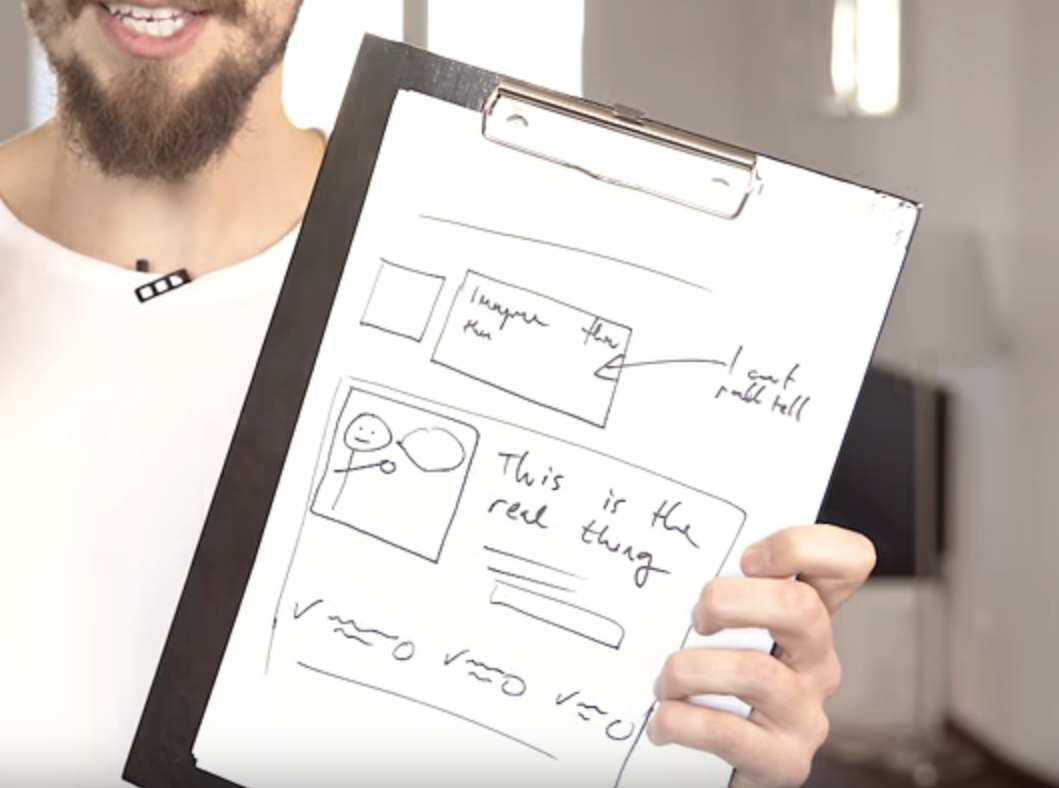 Imagine this
this
I can't
really tell
This is the
real thing